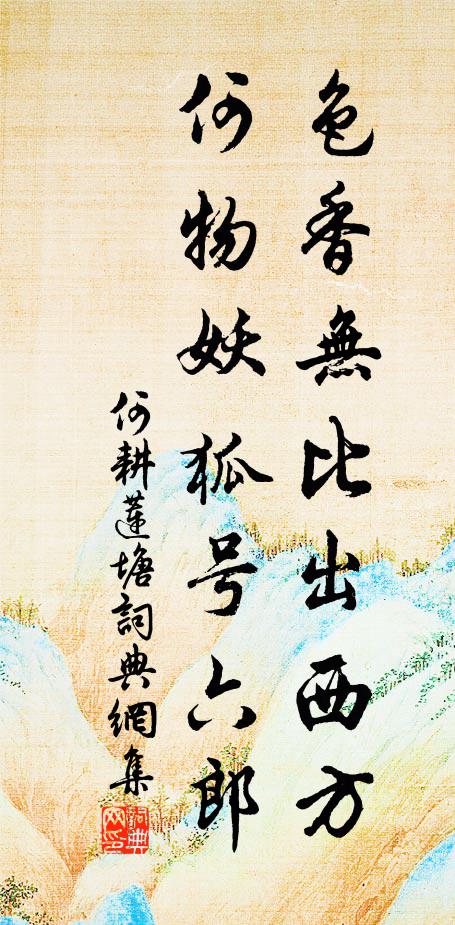 色香無比出西方
何物妖狐号六郎
何耕蓮塘詞典網集
詞典網印